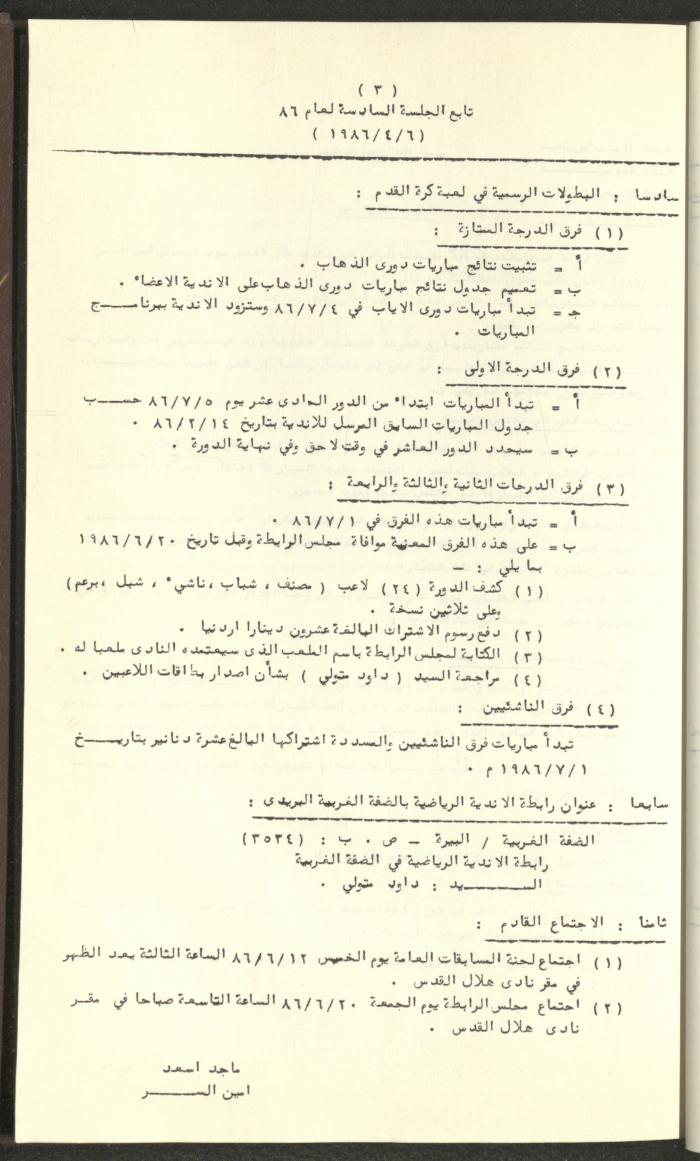 ( ٣ )
تابع الجلسة السادسة لعام ٨٦
( ١٩٨٦/٤/٦ )
سادسا : البطولات الرسمية في لعبة كرة القدم :
( ١ ) فرق الدرجة الممتازة :
أ = تثبيت نتائج مباريات دورى الذهاب .
ب = تعميم جدول نتائج مباريات دورى الذهاب على الاندية الاعضاء .
جـ = تبدأ مباريات دورى الاياب في ٨٦/٧/٤ وستزود الاندية ببرنامـــــج
المباريات .
( ٢ ) فرق الدرجة الاولى :
أ = تبدأ المباريات ابتداء من الدور الحادى عشر يوم ٨٦/٧/٥ حســـب
جدول المباريات السابق المرسل للاندية بتاريخ ٨٦/٢/١٤ .
ب = سيحدد الدور العاشر في وقت لاحق وفي نهاية الدورة .
( ٣ ) فرق الدرجات الثانية والثالثة والرابعة :
أ = تبدأ مباريات هذه الفرق في ٨٦/٧/١ .
ب = على هذه الفرق المعنية موافاة مجلس الرابطة وقبل تاريخ ١٩٨٦/٦/٢٠
بما يلي : ــ
( ١ ) كشف الدورة ( ٢٤ ) لاعب ( مصنف ، شباب ، ناشيء ، شبل ، برعم )
وعلى ثلاثين نسخة .
( ٢ ) دفع رسوم الاشتراك البالغة عشرون دينارا اردنيا .
( ٣ ) الكتابة لمجلس الرابطة باسم الملعب الذى سيعتمده النادى ملعبا له .
( ٤ ) مراجعة السيد ( داود متولي ) بشأن اصدار بطاقات اللاعبين .
( ٤ ) فرق الناشئيين :
تبدأ مباريات فرق الناشئيين والمسددة اشتراكها البالغ عشرة دنانير بتاريـــــخ
١٩٨٦/٧/١ م .
سابعا : عنوان رابطة الاندية الرياضية بالضفة الغربية البريدى :
الضفة الغربية / البيرة ــ ص . ب : ( ٣٥٣٤ )
رابطة الاندية الرياضية في الضفة الغربية
الســـــــيد : داود متولي .
ثامنا : الاجتماع القادم :
( ١ ) اجتماع لجنة المسابقات العامة يوم الخميس ٨٦/٦/١٢ الساعة الثالثة بعد الظهر
في مقر نادى هلال القدس .
( ٢ ) اجتماع مجلس الرابطة يوم الجمعة ٨٦/٦/٢٠ الساعة التاسعة صباحا في مقــر
نادى هلال القدس .
ماجد اسعد
امين الســــــر